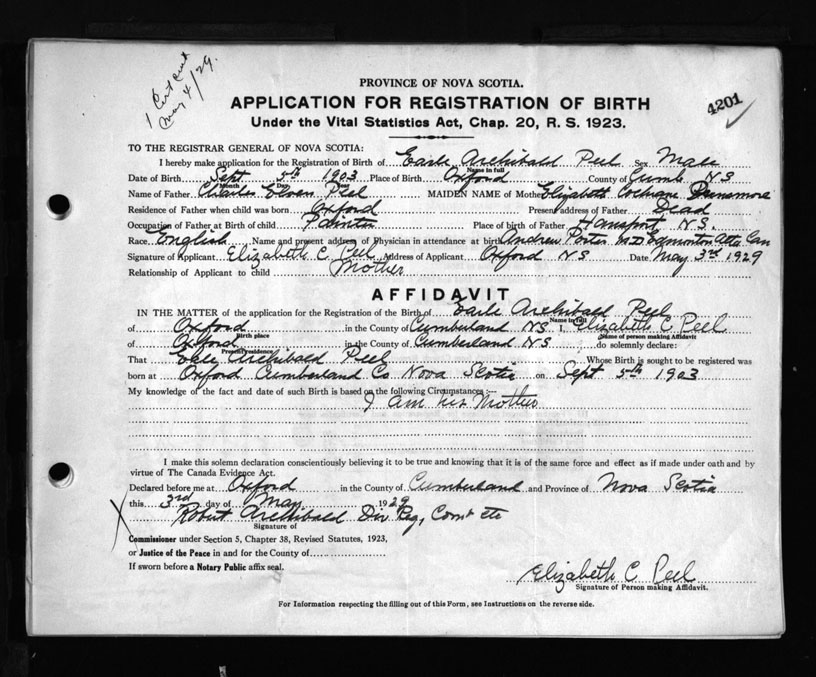 1 Cert sent
May 4/29.
4201
PROVINCE OF NOVA SCOTIA.
APPLICATION FOR REGISTRATION OF BIRTH
Under the Vital Statistics Act, Chap. 20, R. S. 1923.
TO THE REGISTRAR GENERAL OF NOVA SCOTIA:
I hereby make application for the Registration of Birth of Earle Archibald Peel Sex Male
Name in full
Date of Birth Sept 5th 1903 Place of Birth Oxford County of Cumb NS
Month Day Year
Name of Father Charles Peel MAIDEN NAME of Mother Elizabeth Cochrane Dunsmore
Residence of Father when child was born Oxford Present address of Father Dead
Occupation of Father at Birth of child Painter Place of birth of Father Hansport N.S.
Race English Name and present address of Physician in attendance at birth Andrew Porter MD Edmonton Alta Can
Signature of Applicant Elizabeth C. Peel Address of Applicant Oxford NS Date May 3rd 1929
Relationship of Applicant to child Mother
AFFIDAVIT
IN THE MATTER of the application for the Registration of the Birth of Earle Archibald Peel
Name in full
of Oxford in the County of Cumberland NS I, Elizabeth C. Peel
Birth place Name of person making Affidavit
of Oxford in the County of Cumberland NS do solemnly declare:
Present residence
That Earle Archibald Peel Whose Birth is sought to be registered was
born at Oxford Cumberland Co Nova Scotia on Sept 5th 1903
My knowledge of the fact and date of such Birth is based on the following Circumstances:—
I am his Mother
I make this solemn declaration conscientiously believing it to be true and knowing that it is of the same force and effect as if made under oath and by
virtue of The Canada Evidence Act.
Declared before me at Oxford in the County of Cumberland and Province of Nova Scotia
this 3rd day of May 1929
Robert Archibald Div Reg, Comr etc
Signature of
Commissioner under Section 5, Chapter 38, Revised Statutes, 1923,
or Justice of the Peace in and for the County of
If sworn before a Notary Public affix seal.
Elizabeth C Peel
Signature of Person making Affidavit.
For Information respecting the filling out of this Form, see Instructions on the reverse side.